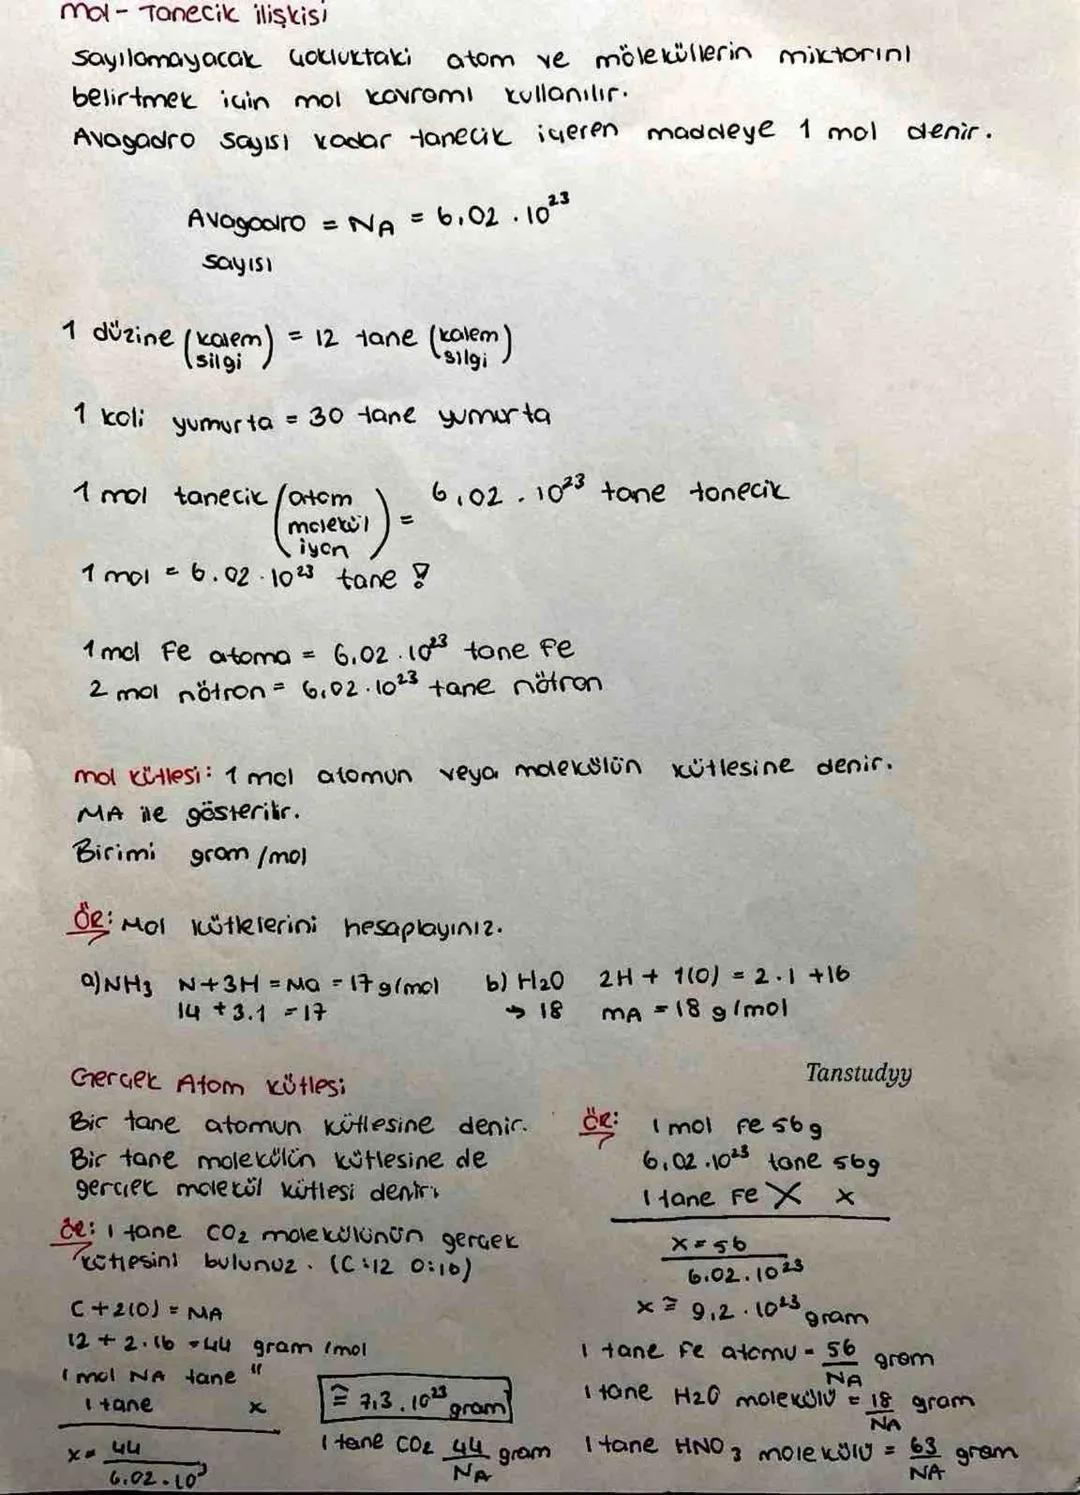 mol - Tanecik ilişkisi
Sayılamayacak çokluktaki atom ve möleküllerin miktarını
belirtmek için mol kavramı kullanılır.
Avagadro sayısı kadar tanecik içeren maddeye 1 mol denir.
Avagadro = NA = 6,02 . 10²³
sayısı
1 düzine (kalem silgi) = 12 tane (kalem silgi)
1 koli yumurta = 30 tane yumurta
1 mol tanecik (atom molekül iyon) = 6,02 . 10²³ tane tanecik
1 mol = 6.02 . 10²³ tane !
1 mol Fe atomo = 6,02 . 10²³ tane Fe
2 mol nötron = 6,02 . 10²³ tane nötron
mol kütlesi: 1 mol atomun veya molekülün kütlesine denir.
MA ile gösterilir.
Birimi gram/mol
ÖR: Mol kütlelerini hesaplayınız.
a) NH₃ N+3H = Ma = 17 g/mol
14 + 3.1 = 17
b) H₂O 2H + 1(O) = 2.1 + 16
→ 18 mA = 18 g/mol
Gerçek Atom kütlesi
Bir tane atomun kütlesine denir.
Bir tane molekülün kütlesine de
gerçek molekül kütlesi denir.
ÖR: 1 tane CO₂ molekülünün gerçek
kütlesini bulunuz. (C:12 O:16)
C+2(O) = MA
12 + 2.16 = 44 gram/mol
1 mol NA tane "
1 tane x
x = 44 / 6.02.10²
≅ 7,3 . 10²³ gram
1 tane CO₂ 44/NA gram
Tanstudyy
ÖR: 1 mol Fe 56g
6,02 .10²³ tane 56g
1 tane Fe X x
x = 56 / 6.02.10²³
x ≅ 9,2 . 10²³ gram
1 tane Fe atomu = 56/NA gram
1 tane H₂O molekülü = 18/NA gram
1 tane HNO₃ molekülü = 63/NA gram